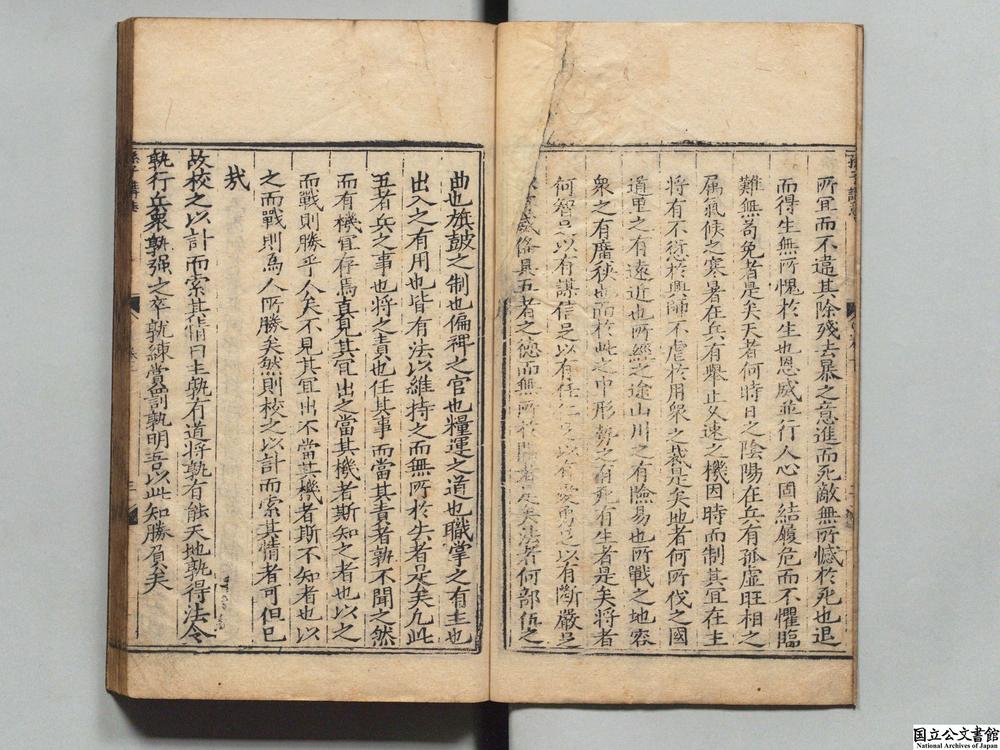 所宜而不違其除残去暴之意進而死敵無所憾於死也退
而得生無所愧於生也恩威並行人心固結履危而不懼臨
難無苟免者是矣天者何時日之陰陽在兵有孤虛旺相之
属氣候之寒暑在兵有舉止久速之機因時而制其宜在主
將有不愆於興師不虐於用衆之義是矣地者何所伐之國
道里之有遠近也所經之途山川之有險易也所戰之地容
衆之有廣狹也而於此之中形勢之有死有生者是矣將者
何智足以有謀信足以有任仁足以有愛勇足以有斷嚴足
威俗具五者之德而無所者是矣法者何部伍之
曲也旗鼓之制也偏裨之官也糧運之道也職掌之有主也
出入之有用也皆有法以維持之而無所於失者是矣凡此
五者兵之事也將之責也任其事而當其責者孰不聞之然
而有機宜存焉真見其宜出之當其機者斯知之者也以之
而戰則勝乎人矣不見其宜出不當其機者斯不知者也以
之而戰則為人所勝矣然則校之以計而索其情者可但已
哉
故校之以計而索其情曰主孰有道將孰有能天地孰得法令
孰行兵衆孰强之卒孰練賞罰孰明吾以此知勝負矣
国立公文書館
National Archives of Japan